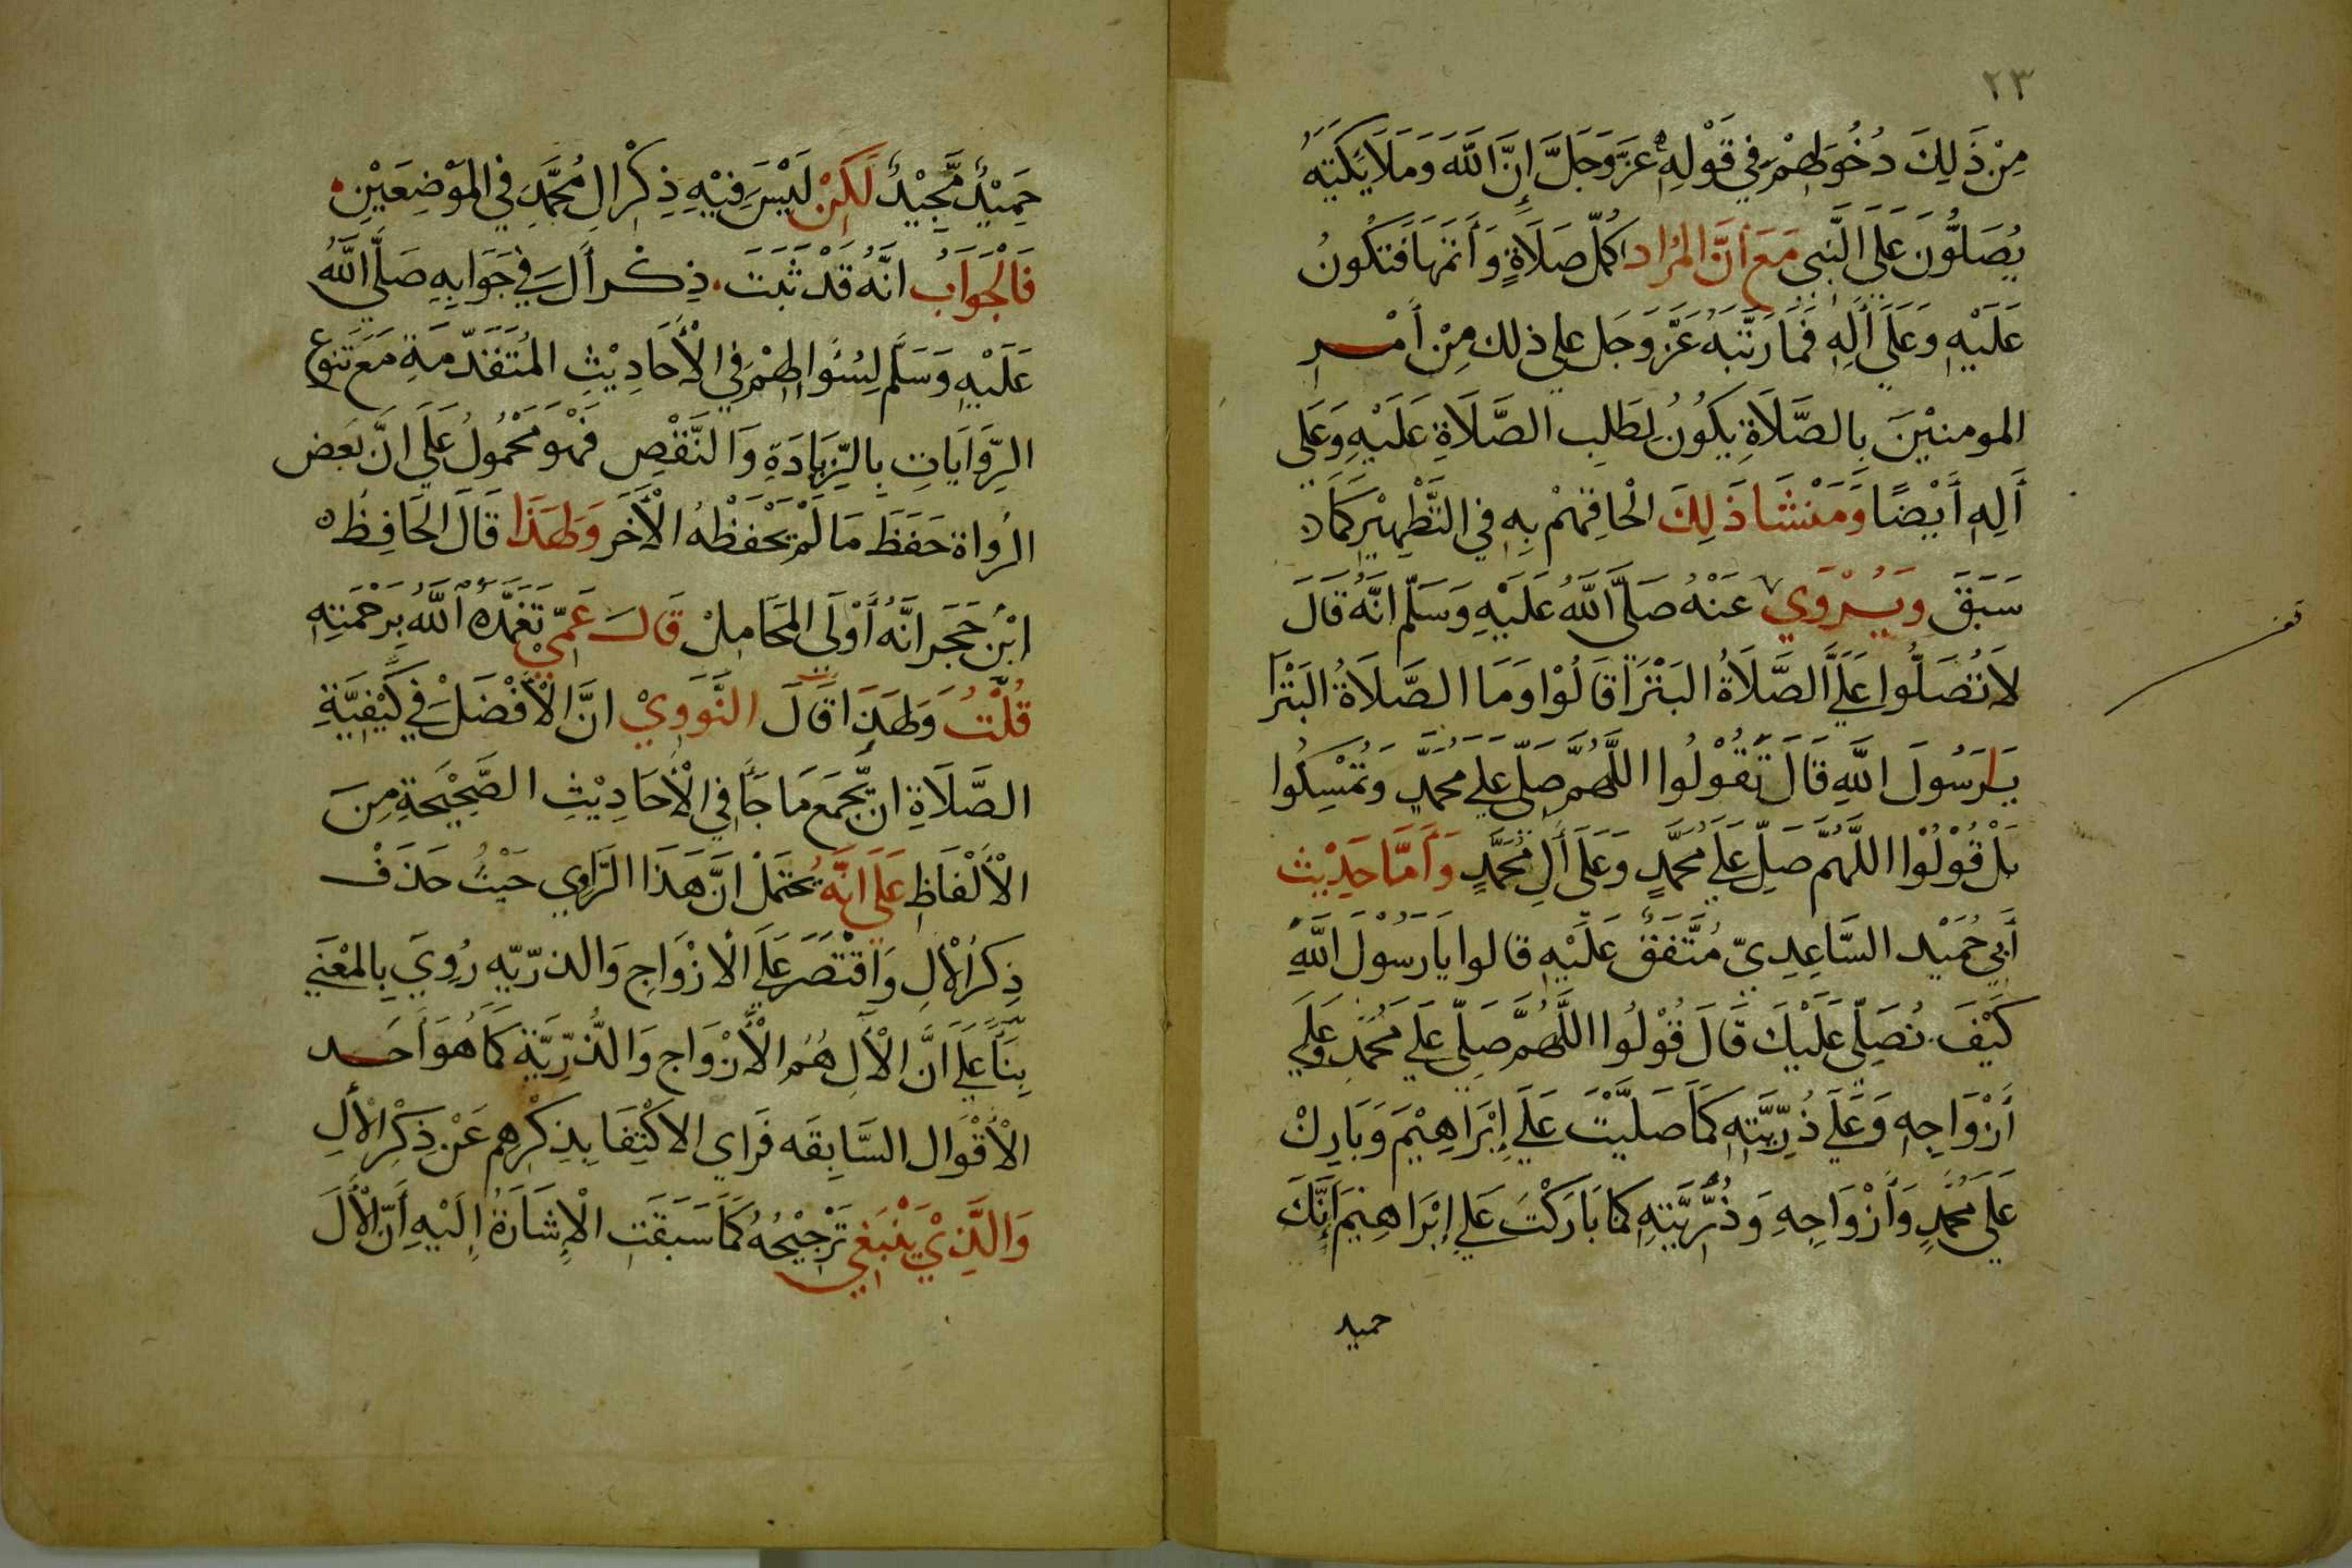 ٢٣
مِنْ ذَلِكَ دُخُولِهِمْ فِي قَوْلِهِ عَزَّ وَجَلَّ إِنَّ اللَّهَ وَمَلَايِكَتِهِ
يُصَلُّونَ عَلَى النَّبِي مَعَ أَنَّ المُرَاد اكمل صَلَاةٍ وَأَتَمَّهَا فَتَكُونُ
عَلَيْهِ وَعَلَى أَلِهِ فَمَا رَتَّبَهُ عَزَّ وَجَل علي ذلك مِنْ أَمْرِ
المومنِيْنَ بِالصَّلَاةِ يَكُونُ لِطَلِب الصَّلَاةِ عَلَيْهِ وَعَلَى
أَلِهِ أَيْضًا وَمَنْشَا ذَلِكَ الْحَاقِهِمْ بِهِ فِي التَّطْهِيْرِ كَمَا
سَبَقَ وَيُرْوَي عَنْهُ صَلَّى اللَّهُ عَلَيْهِ وَسَلَّم انَّهُ قَالَ
لَا تُصَلُّوا عَلَيَّ الصَّلَاةُ البَتْرَا قَالُوْا وَمَا الصَّلَاةُ البَتْرَا
يَا رَسُولَ اللَّهِ قَالَ تَقُوْلُوا اللَّهُمَّ صَلِّ عَلي محَمَّدٍ وَتُمْسِكُوا
بَلْ قُوْلُوْا اللَّهُمَّ صَلِّ عَلَي مُحَمَّدٍ وَعَلَى أَلِ مُحَمَّدٍ وَأَمَّا حَدِيْث
أَبِي حُمَيْد السَّاعِدِيّ مُتَّفَقٌ عَلَيْهِ قالوا يَا رَسُوْلَ اللَّهِ
كَيْفَ نُصَلِّي عَلَيْكَ قَالَ قُوْلُوا اللَّهُمَّ صَلِّي عَلَي مُحَمَّدٍ وَعَلَي
أَزْوَاجِهِ وَعَلَي ذُرِّيَّتِهِ كَمَا صَلَّيْتَ عَلَي إِبْرَاهِيْمَ وَبَارِكْ
عَلَى مُحَمَّدٍ وَأَزْوَاجِهِ وَذُرِّيَّتِهِ كمَا بَارَكْتَ عَلي إِبْرَاهِيْمَ إِنَّكَ
حميد
حَمِيْدٌ مَّجِيْدٌ لَكِنْ لَيْسَ فِيْهِ ذِكْرُ الِ مُحَمَّدٍ فِي المَوْضِعَيْنِ
فَالْجَوَابُ انَّهُ قَدْ ثَبَتَ ذِكْر أَلَ فِي جَوَابِهِ صَلَّى اللَّهُ
عَلَيْهِ وَسَلَّم لِسُئَوالهِمْ فِي الْأَحَادِيْثِ المُتَقَدّمَةِ مَعَ تَنوع
الرِّوَايَاتِ بِالزِّيَادَةِ وَالنَّقْصِ فَهْوَ مَحْمُولُ عَلَي انَّ بَعض
الرُواة حَفَظَ مَا لَمْ يَحْفَظْهُ الْأَخَر وَلِهَذَا قَالَ الحَافِظُ
ابْن حَجَر انَّهُ أَوْلَى المَحَامِلْ قَالَ عَمِّيْ تَغَمَّدَهُ اللَّهُ بِرَحْمَتِهِ
قُلْتُ وَلِهَذَا قَالَ النَّوَوِيْ انَّ الْأَفْضَلَ فِي كَيْفِيَّةِ
الصَّلَاةِ ان يَّجْمَع مَا جَا فِي الْأَحَادِيْثِ الصَّحِيْحَةِ مِنَ
الْأَلْفَاظِ عَلَى انَّهُ يُحْتَمَلْ انَّ هَذَا الرَّاوِي حَيْثُ حَذَفَ
ذِكرُ الْأَلِ وَاقْتَصَرَ عَلَي الْازْوَاجِ وَالذرّيّهِ رُوِيَ بِالمَعْنَي
بِنَاً عَلَي انَّ الْأَلِ هُمُ الْأَزْوَاج وَالذُّرِّيَّةِ كَمَا هُوَ أَحَد
الْأَقْوَال السَّابِقَه فَرَاي الاكْتِفَا بِذِكْرِهِم عَنْ ذِكْرِ الْأَلِ
وَالَّذِيْ يَنْبَغِي تَرْجِيْحُهُ كَمَا سَبَقَت الْإِشَارَةُ إِلَيْهِ أَنَّ الْأَلَ